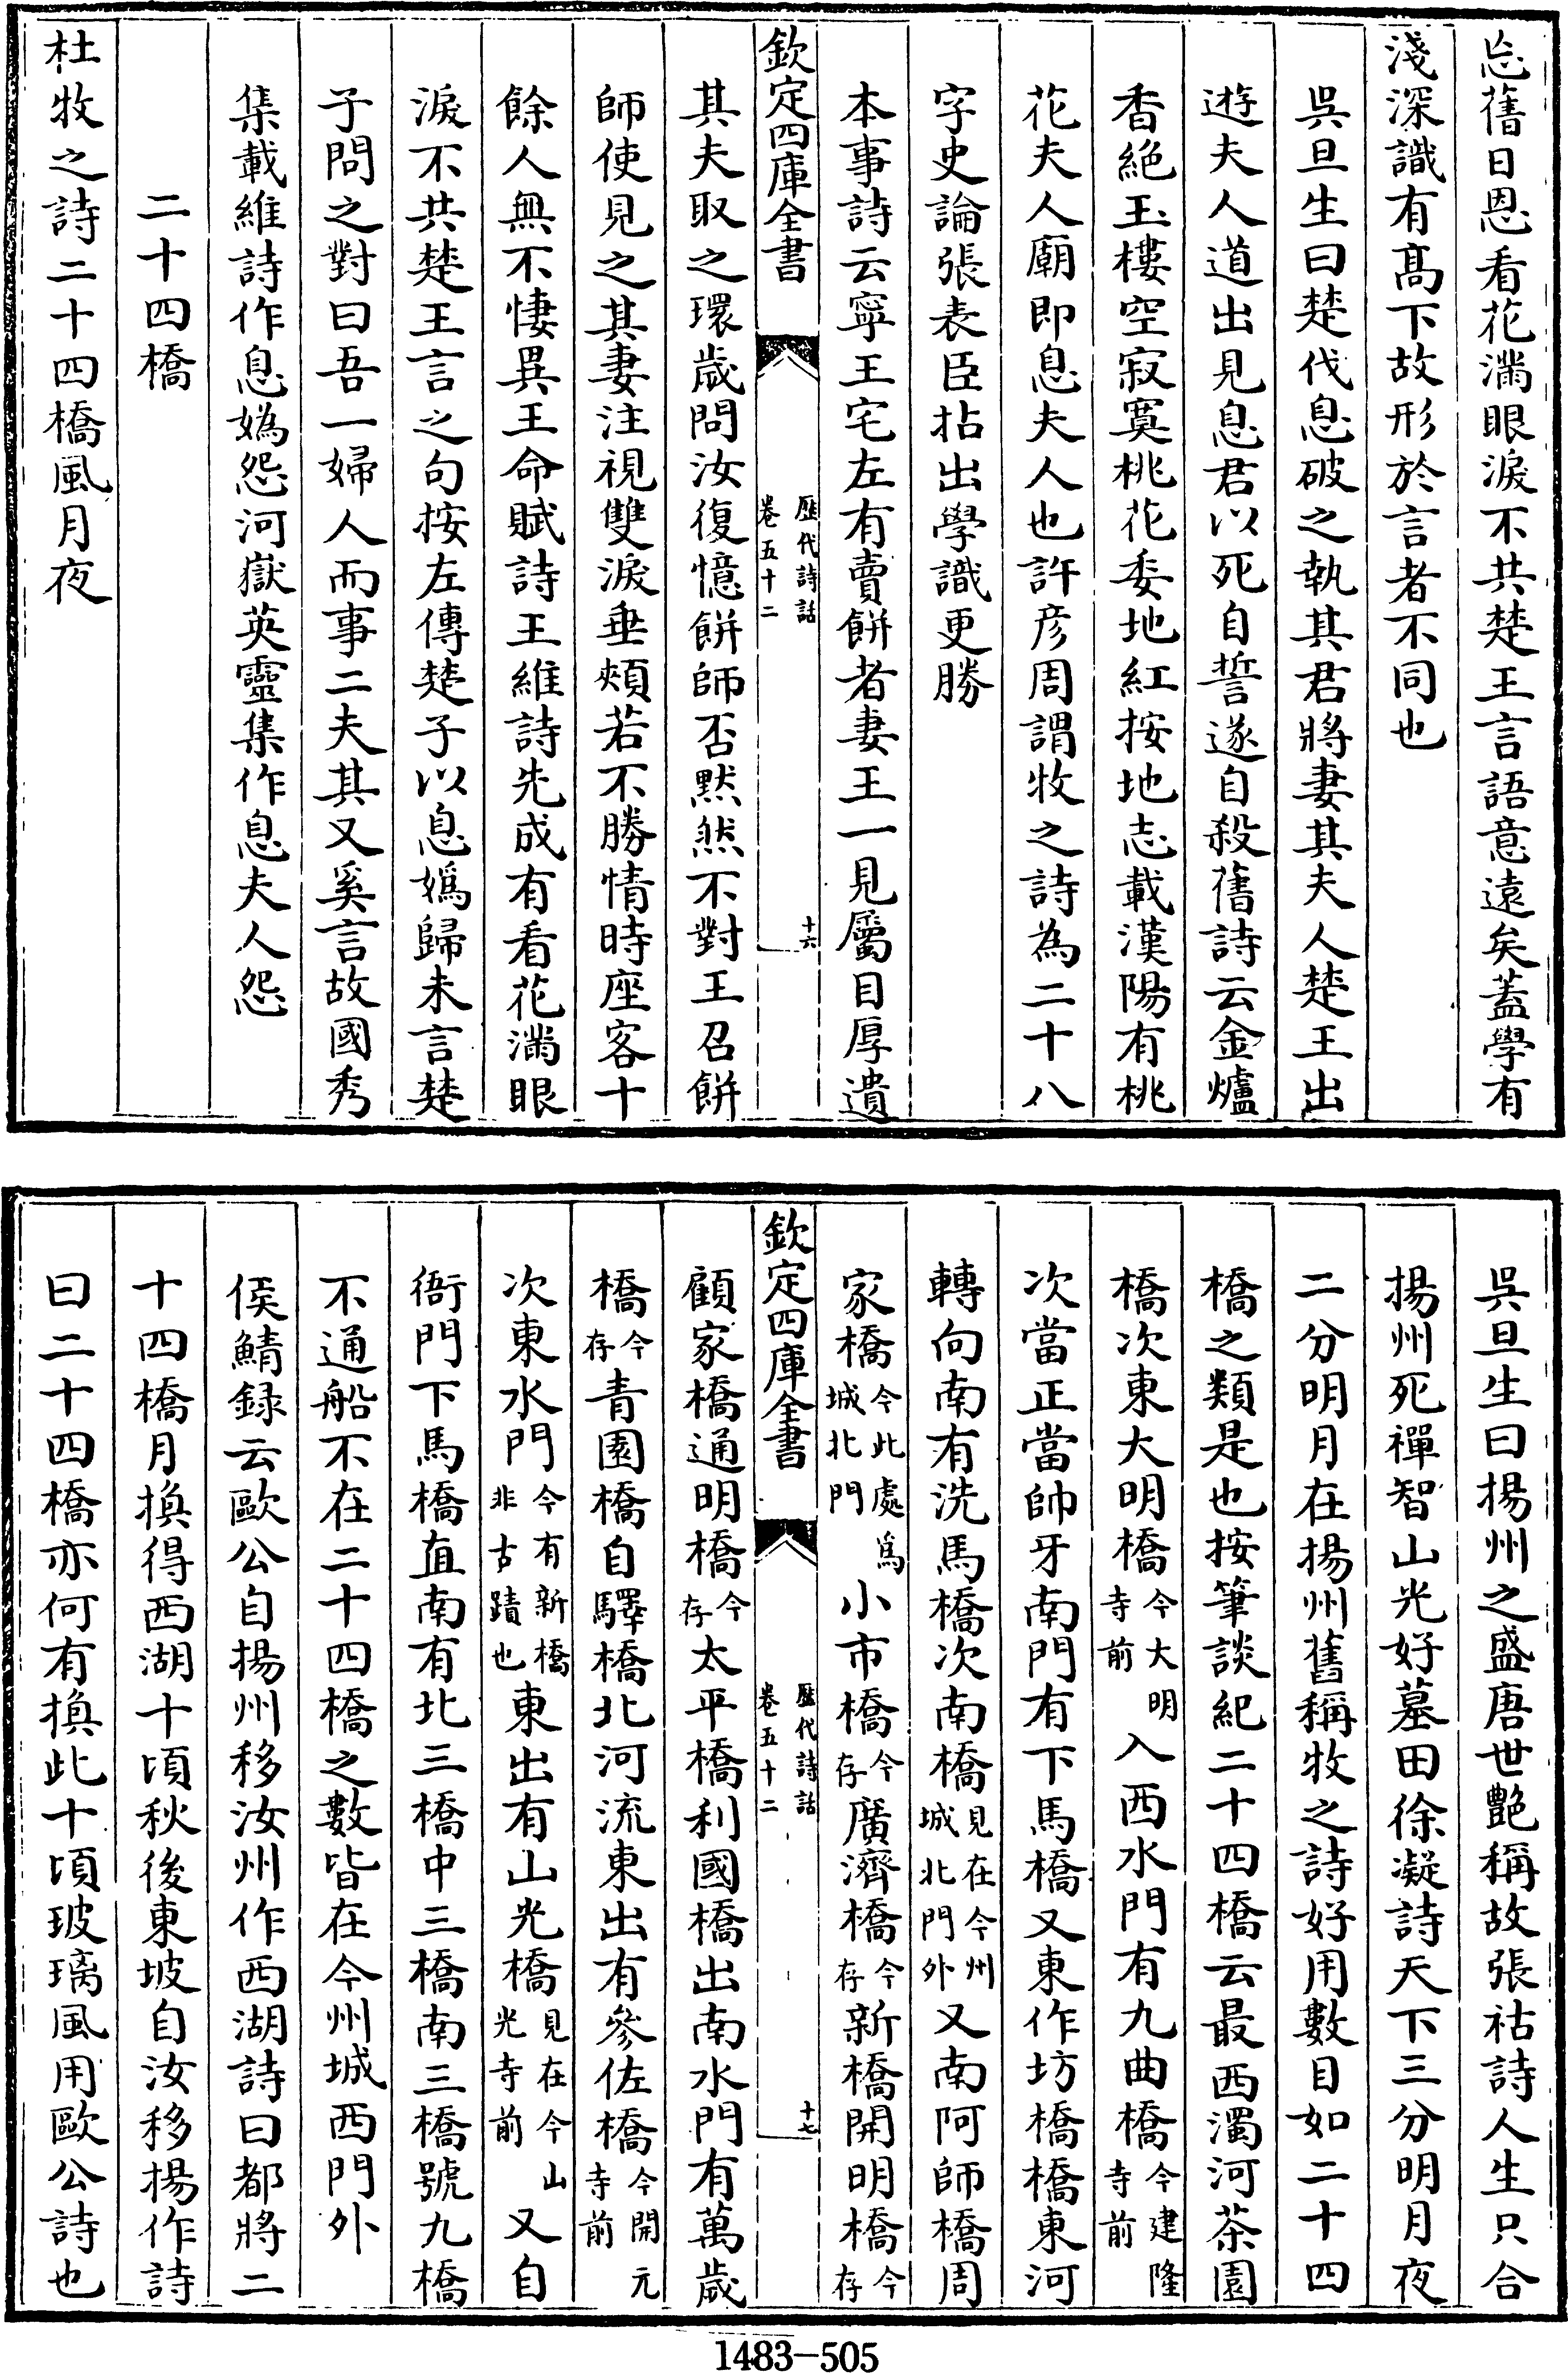 忘舊日恩看花滿眼淚不共楚王言語意遠矣蓋學有
淺深識有髙下故形於言者不同也
吳旦生曰楚伐息破之執其君將妻其夫人楚王出
遊夫人道出見息君以死自誓遂自殺舊詩云金爐
香絶玉樓空寂寞桃花委地紅按地志載漢陽有桃
花夫人廟即息夫人也許彦周謂牧之詩為二十八
字史論張表臣拈出學識更勝
本事詩云寧王宅左有賣餅者妻王一見屬目厚遺
欽定四庫全書
歴代詩話
卷五十二
十六
其夫取之環歳問汝復憶餅師否黙然不對王召餅
師使見之其妻注視雙淚垂頰若不勝情時座客十
餘人無不悽異王命賦詩王維詩先成有看花滿眼
淚不共楚王言之句按左傳楚子以息媯歸未言楚
子問之對曰吾一婦人而事二夫其又奚言故國秀
集載維詩作息媯怨河嶽英靈集作息夫人怨
二十四橋
杜牧之詩二十四橋風月夜
吳旦生曰揚州之盛唐世艶稱故張祜詩人生只合
揚州死禪智山光好墓田徐凝詩天下三分明月夜
二分明月在揚州舊稱牧之詩好用數目如二十四
橋之類是也按筆談紀二十四橋云最西濁河茶園
橋次東大明橋今大明寺前入西水門有九曲橋今建隆寺前
次當正當帥牙南門有下馬橋又東作坊橋橋東河
轉向南有洗馬橋次南橋見在今州城北門外又南阿師橋周
家橋今此處爲城北門小市橋今存廣濟橋今存新橋開明橋今存
欽定四庫全書
歴代詩話
卷五十二
十七
顧家橋通明橋今存太平橋利國橋出南水門有萬歳
橋今存青園橋自驛橋北河流東出有參佐橋今開元寺前
次東水門今有新橋非古蹟也東出有山光橋見在今山光寺前又自
衙門下馬橋直南有北三橋中三橋南三橋號九橋
不通船不在二十四橋之數皆在今州城西門外
侯鯖録云歐公自揚州移汝州作西湖詩曰都將二
十四橋月換得西湖十頃秋後東坡自汝移揚作詩
曰二十四橋亦何有換此十頃玻璃風用歐公詩也
1483-505